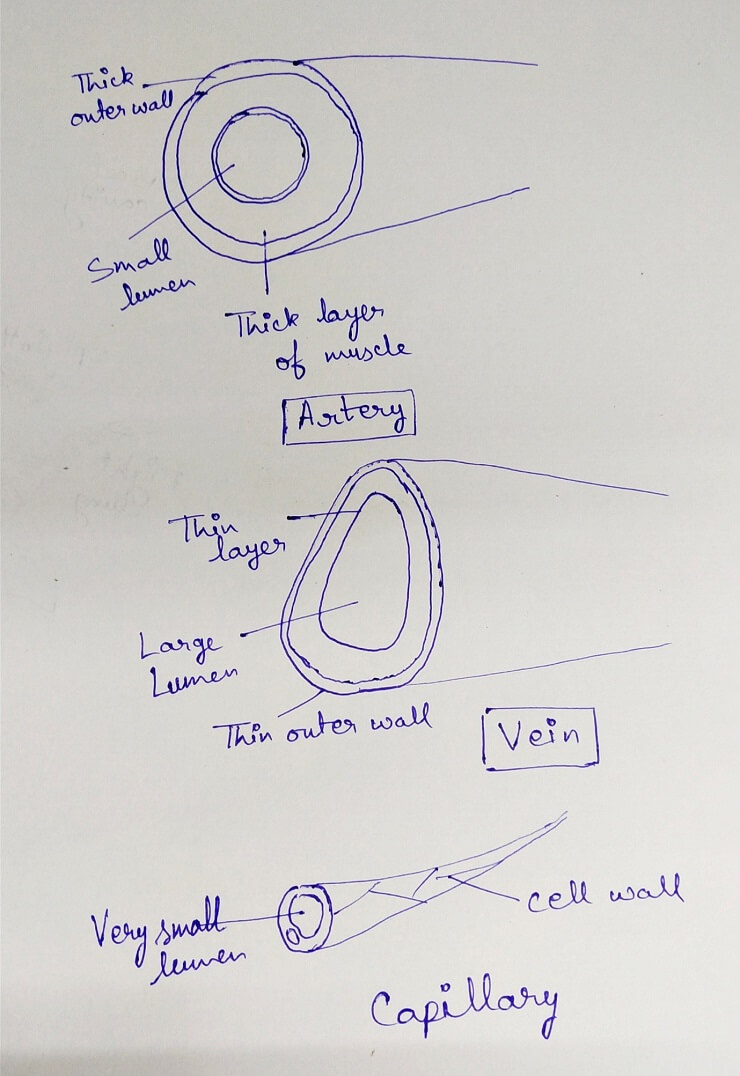 Thick
outer wall
Small
lumen
Thick layer
of muscle
Artery
Thin
layer
Large
Lumen
Thin outer wall
Vein
Very small
lumen
cell wall
Capillary